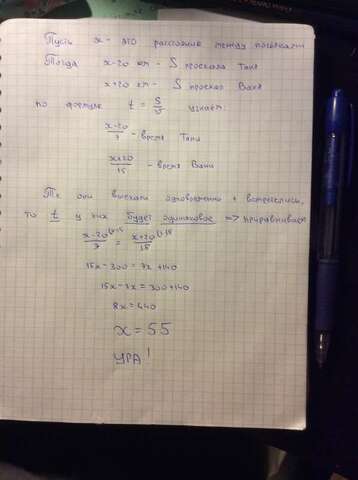 Пусть x - это расстояние между посёлками
Тогда x-20 км - S проехала Таня
x+20 км - S проехал Ваня
по формуле t = S/v узнаём:
x-20/7 - время Тани
x+20/15 - время Вани
Тк они выехали одновременно и встретились,
то t у них будет одинаковое => приравниваем
x-20/7 = x+20/15
15x-300 = 7x+140
15x-7x = 300+140
8x = 440
x = 55
УРА!